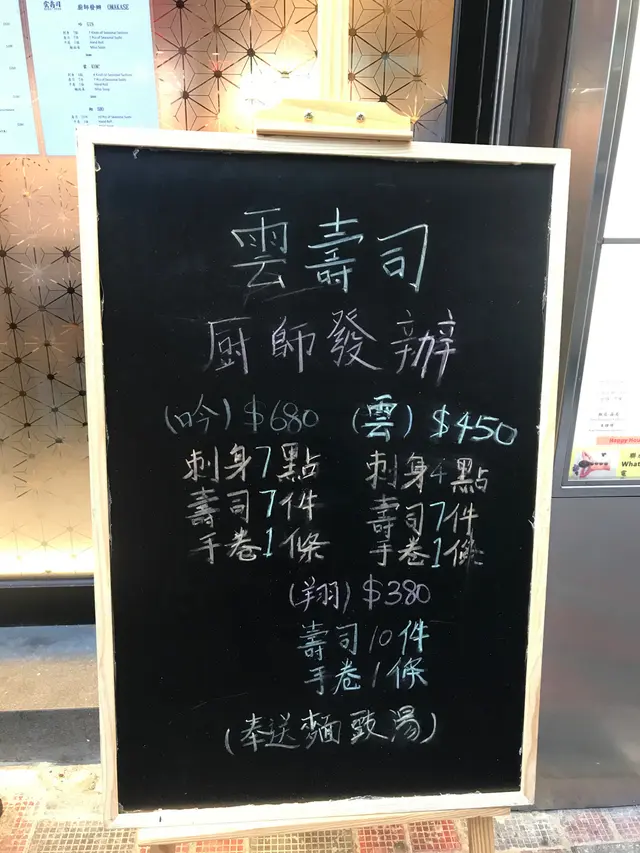 廚師發辦 OMAKASE
雲壽司
厨師發辦
(吟) $680
刺身7點
壽司7件
手卷1條
(雲) $450
刺身4點
壽司7件
手卷1條
(翔) $380
壽司10件
手卷1條
(奉送麵豉湯)
Happy Hou
What